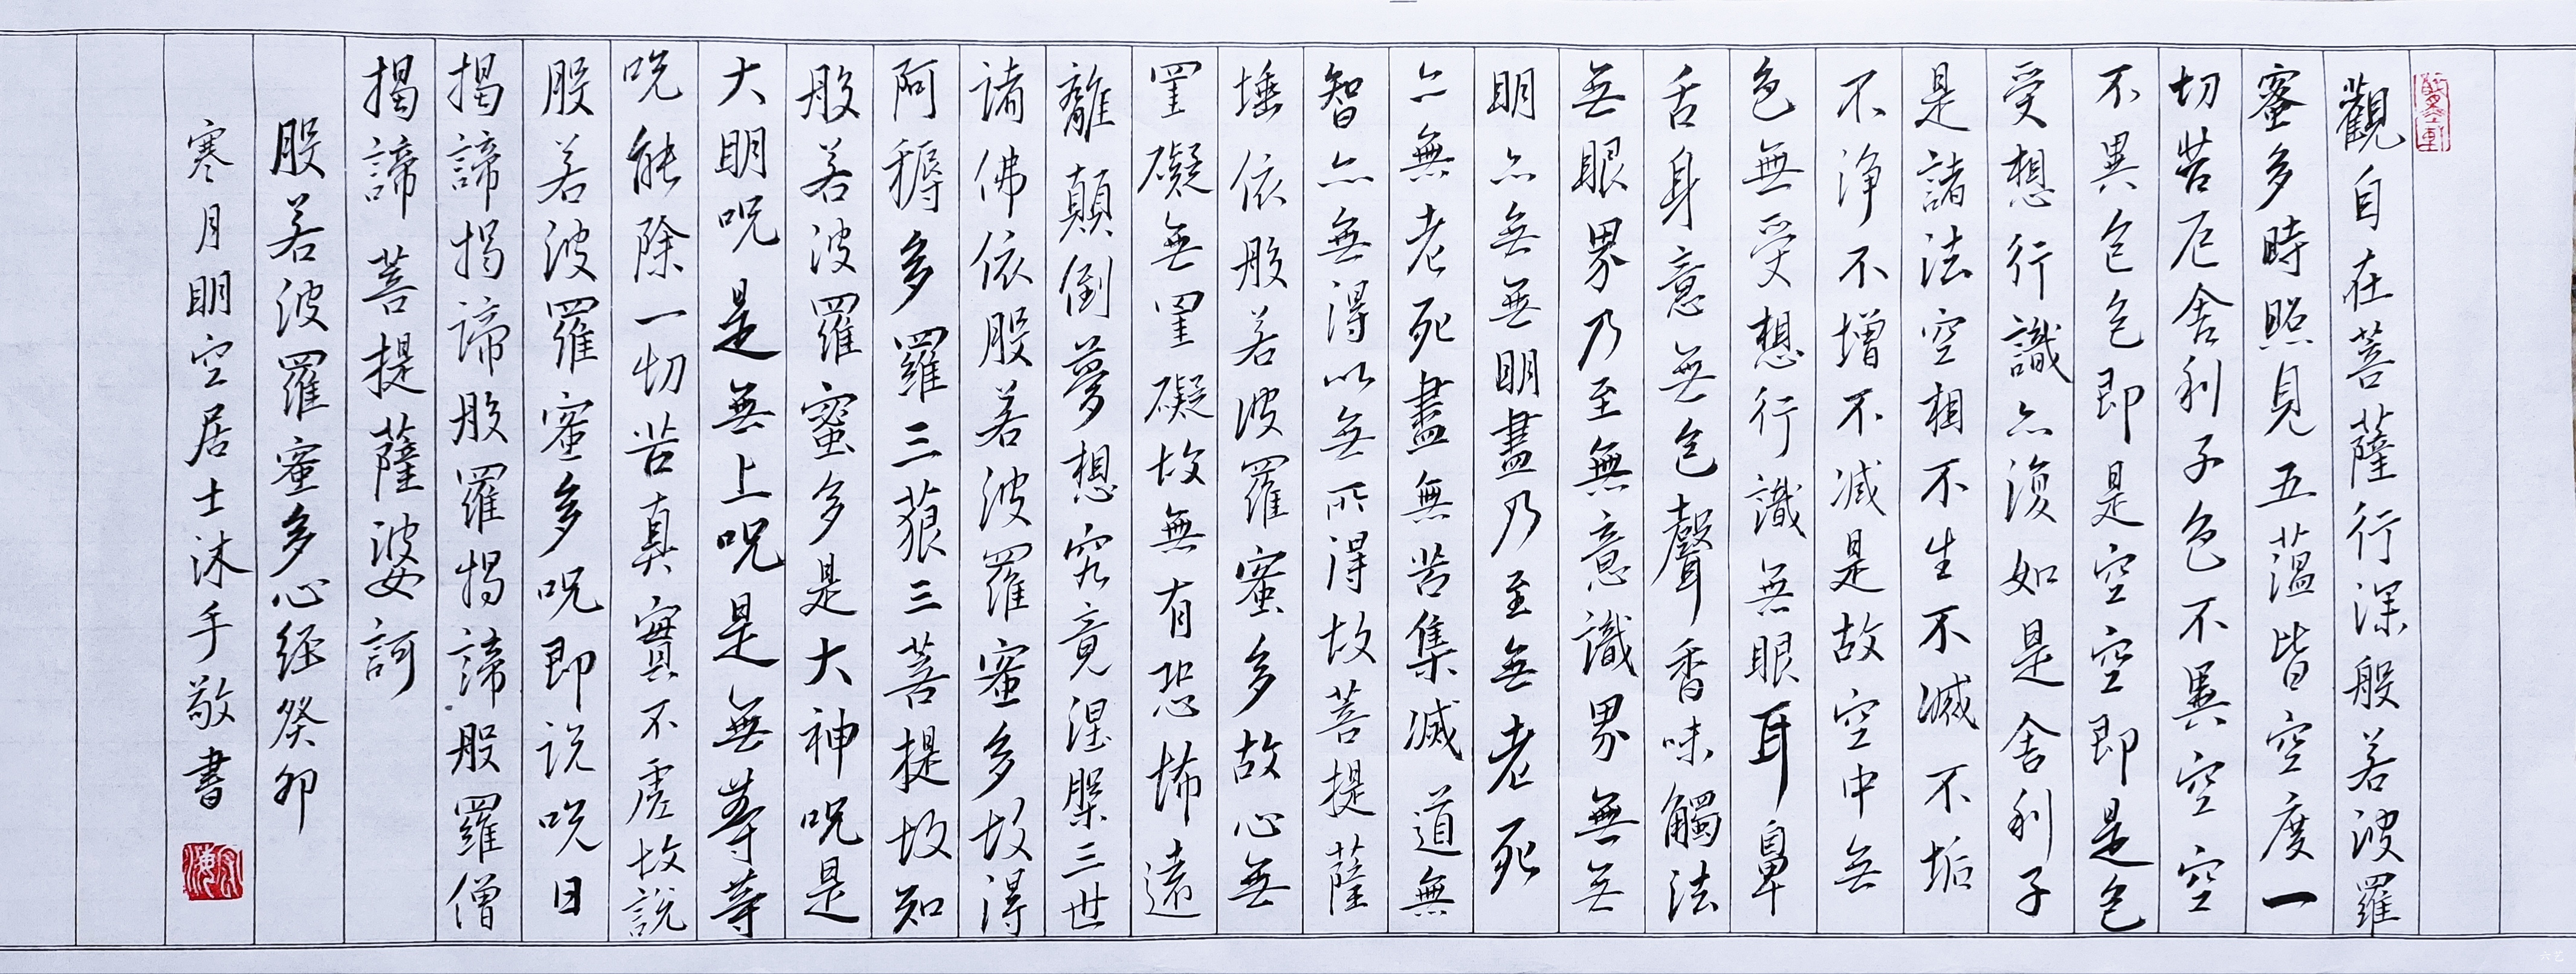 觀自在菩薩行深般若波羅
蜜多時照見五蕰皆空度一
切苦厄舍利子色不異空空
不異色色即是空空即是色
受想行識亦復如是舍利子
是諸法空相不生不滅不垢
不淨不增不減是故空中無
色無受想行識無眼耳鼻
舌身意無色聲香味觸法
無眼界乃至無意識界無無
明亦無無明盡乃至無老死
亦無老死盡無苦集滅道無
智亦無得以無所得故菩提薩
埵依般若波羅蜜多故心無
罣礙無罣礙故無有恐怖遠
離顛倒夢想究竟涅槃三世
諸佛依般若波羅蜜多故得
阿耨多羅三藐三菩提故知
般若波羅蜜多是大神呪是
大明呪是無上呪是無等等
呪能除一切苦真實不虛故說
般若波羅蜜多呪即说呪曰
揭諦揭諦般羅揭諦般羅僧
揭諦菩提薩婆訶
般若波羅蜜多心経癸卯
寒月明空居士沐手敬書